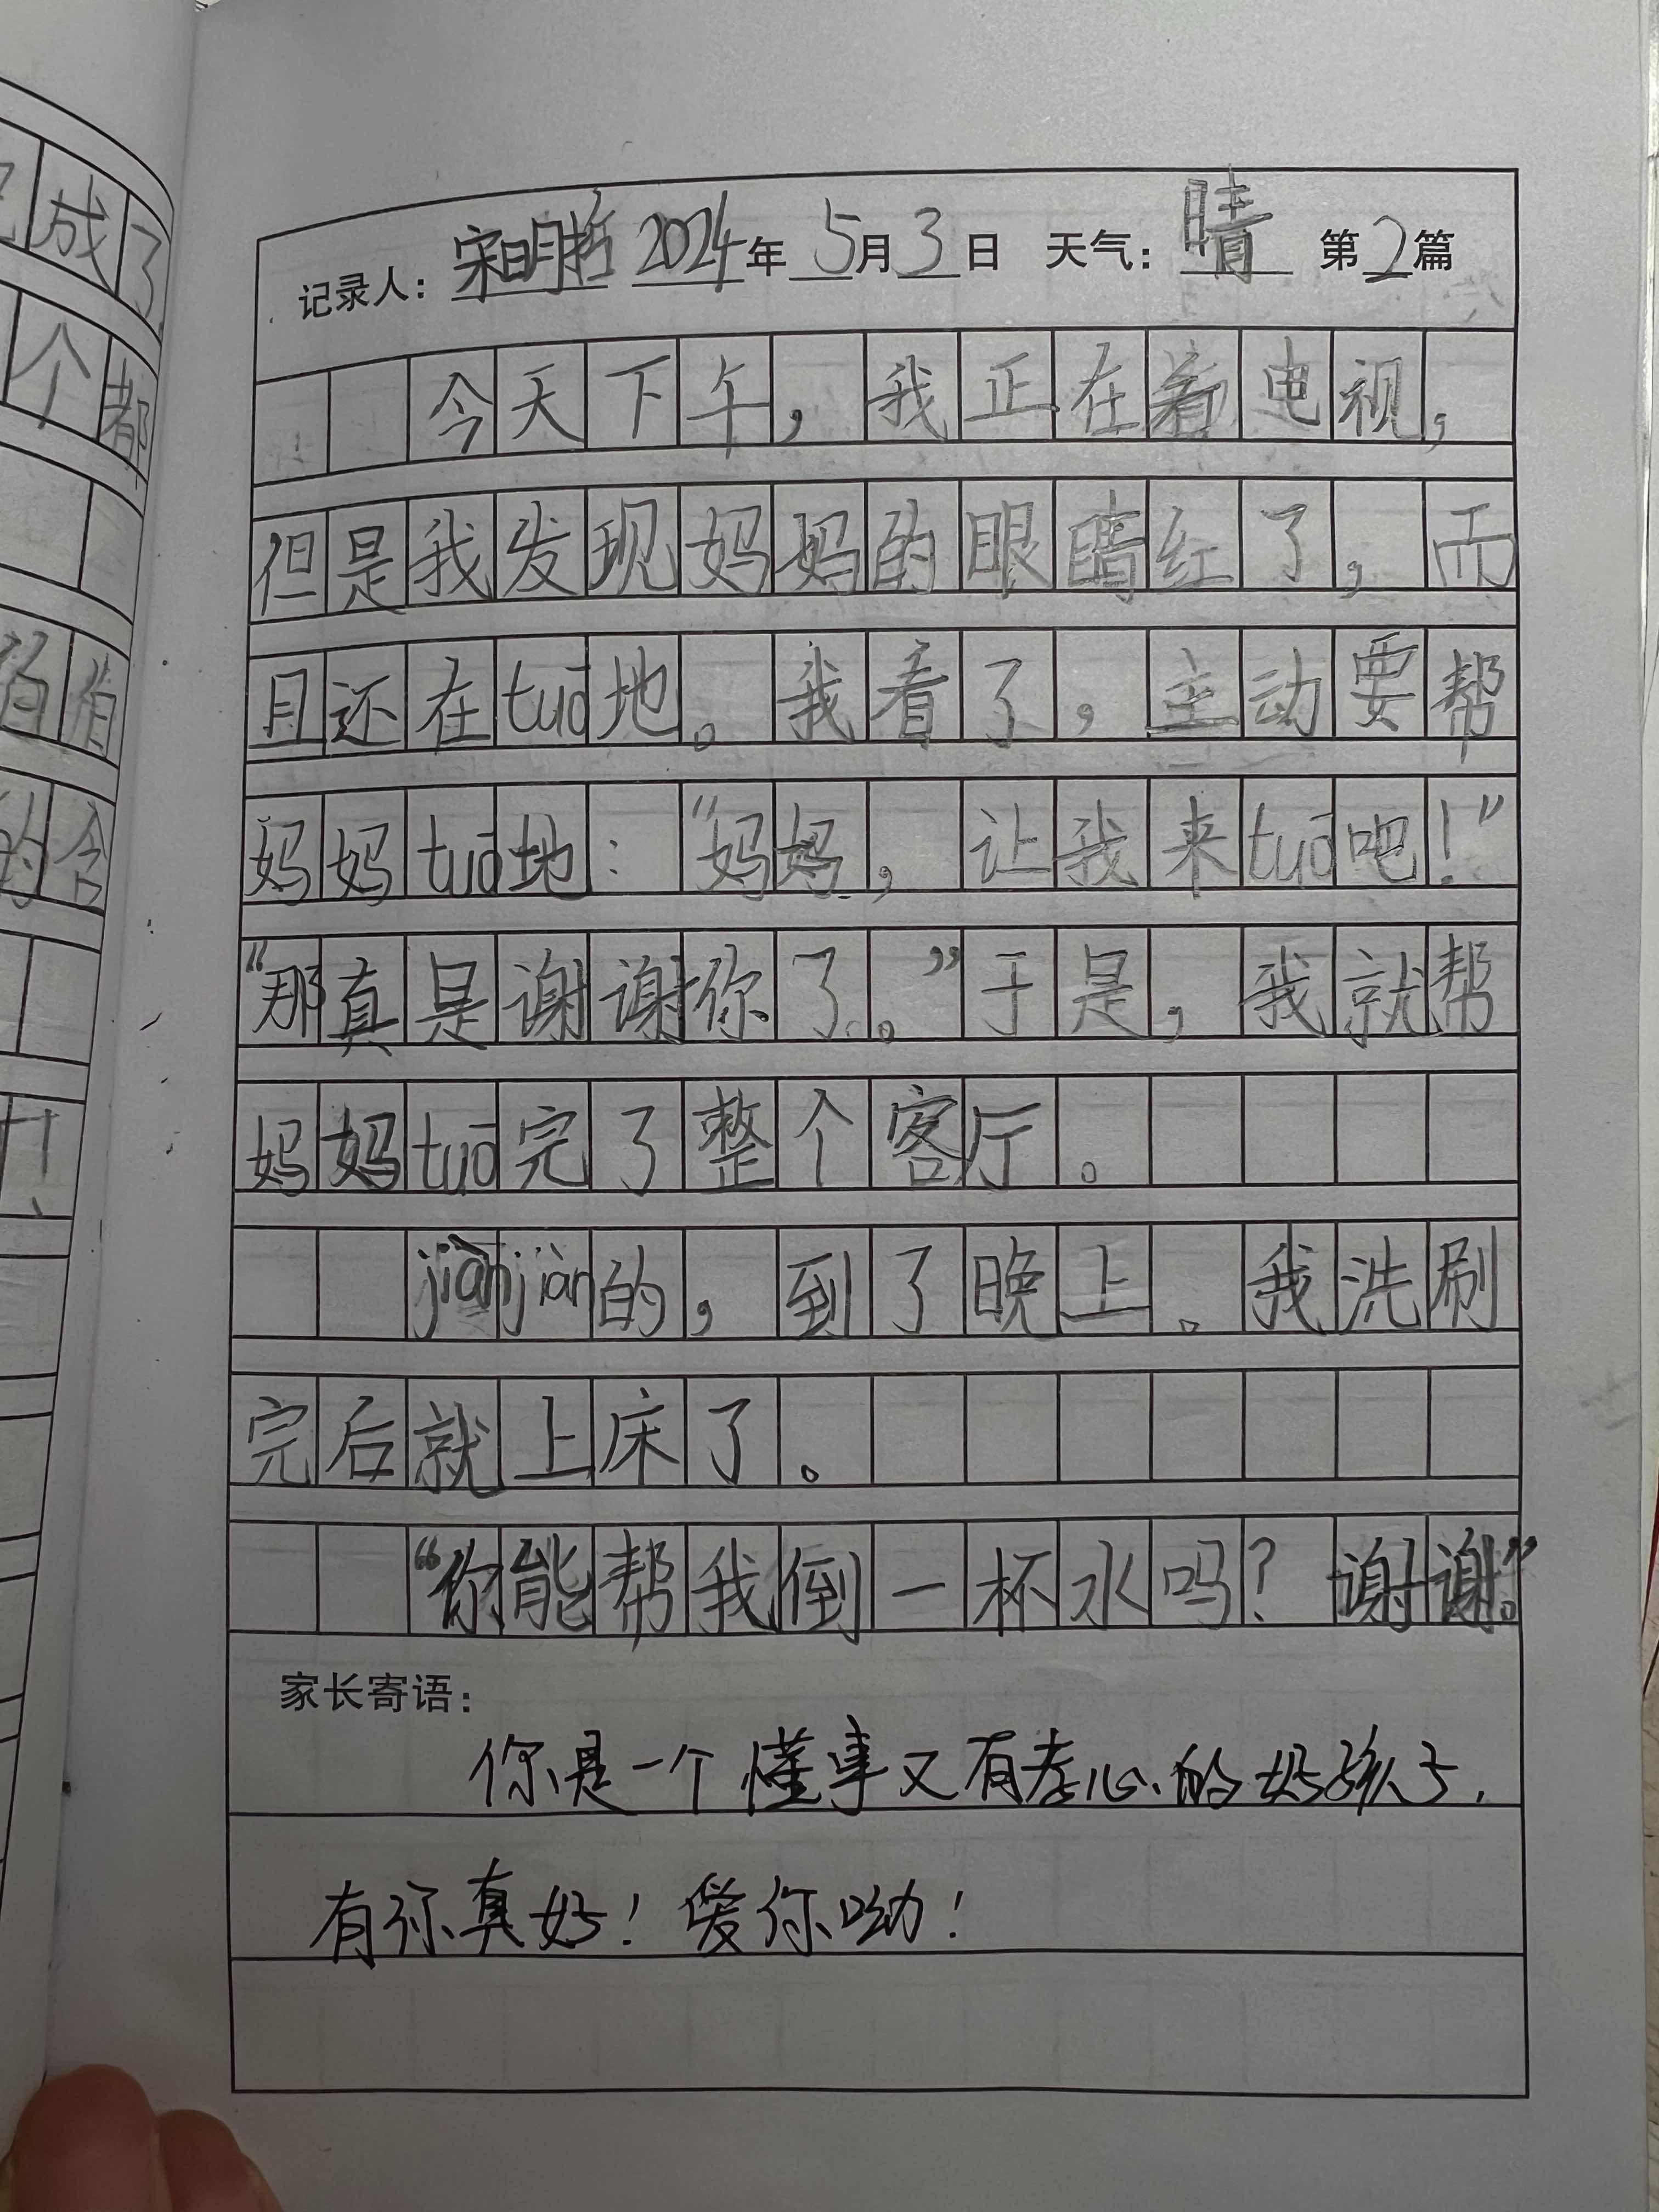 记录人：宋明哲 2024年 5月3日 天气：晴 第2篇
今天下午，我正在着电视，
但是我发现妈妈的眼睛红了，而
且还在tuō地。我看了，主动要帮
妈妈tuō地：“妈妈，让我来tuō吧！”
“那真是谢谢你了。”于是，我就帮
妈妈tuō完了整个客厅。
jiànjiàn的，到了晚上。我洗刷
完后就上床了。
“你能帮我倒一杯水吗？谢谢。”
家长寄语：
你是一个懂事又有孝心的好孩子，
有你真好！爱你呦！
成了
个都
的含